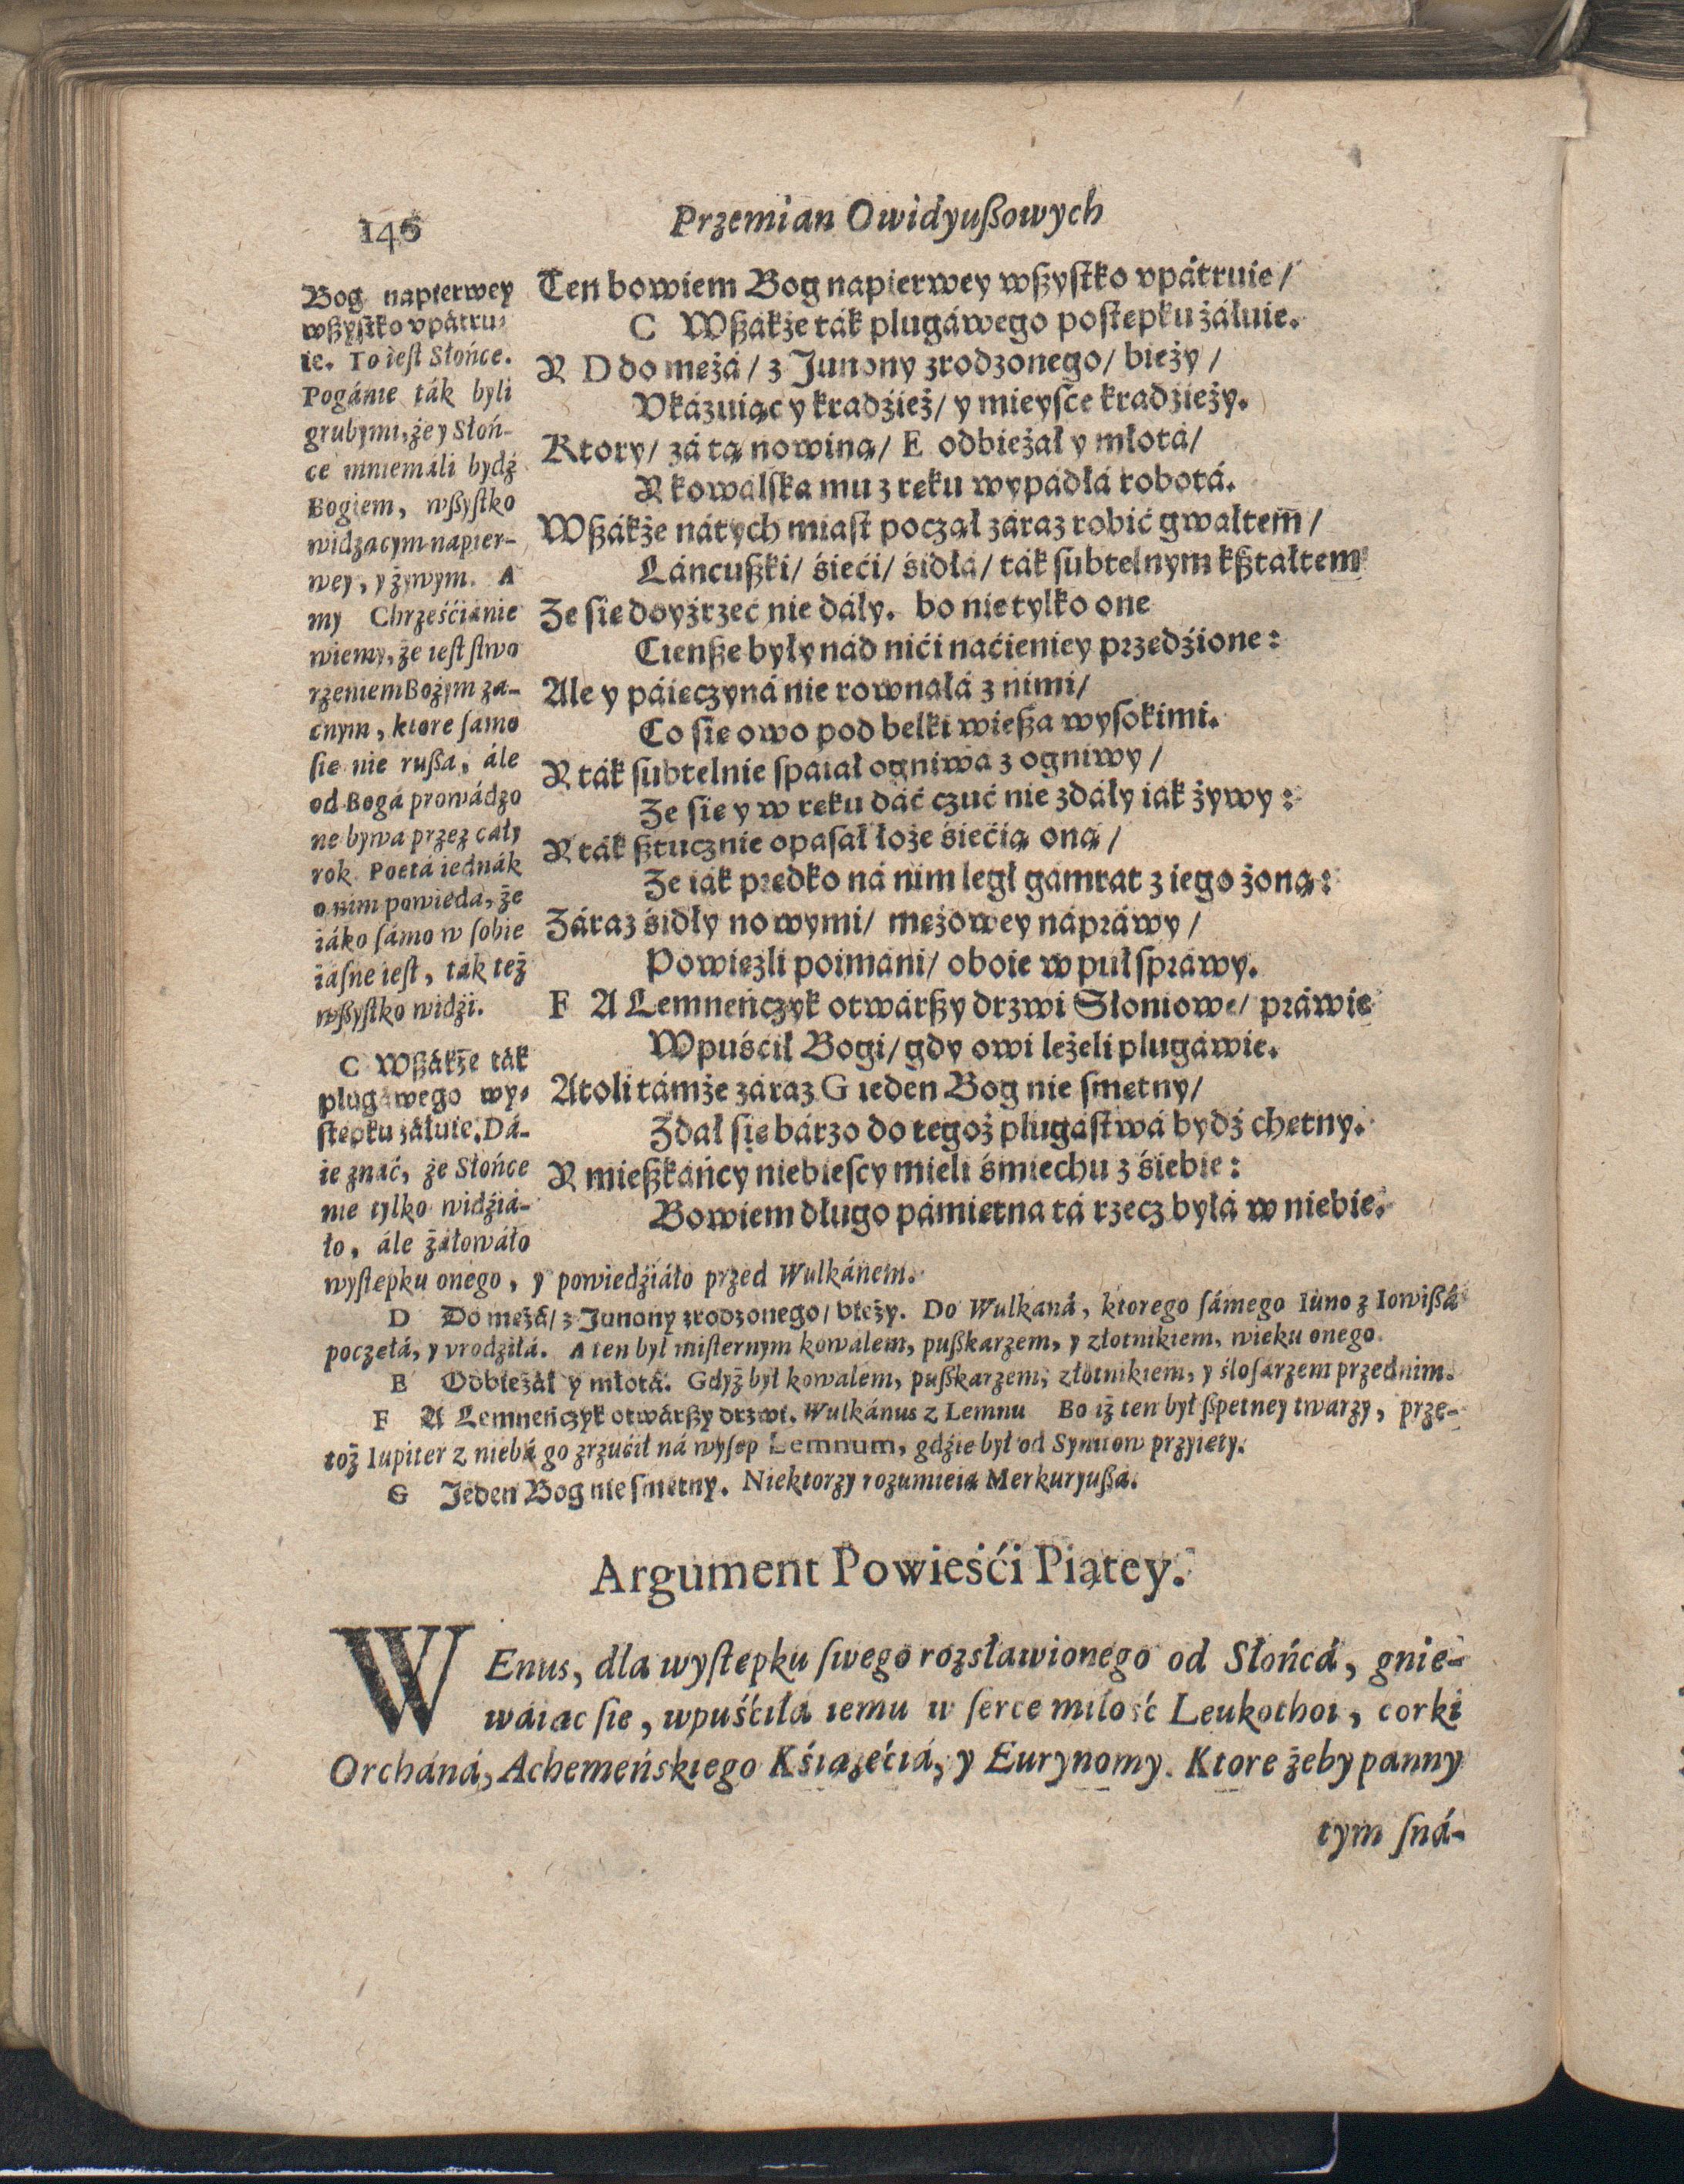 146
Przemian Owidyußowych
Ten bowiem Bog napierwey wßyſtko vpátruie /
C Wßákże ták plugáwego poſtępku żáłuie.
A D do mężá / z Junony zrodzonego / bieży /
Vkázuiąc y kradźież / y mieyſce kradzieży.
Ktory / zá tą nowiną / E odbieżał y młotá /
A kowálſka mu z ręku wypádłá robotá.
Wßákże nátych miaſt począł záraz robić gwałtem̄ /
Láncußki / śieći / śidłá / ták ſubtelnym kßtałtem
Ze ſie doyźrzeć nie dáły. bo nie tylko one
Cienße były nád nići naćieniey przędźione:
Ale y páięczyná nie rownáłá z nimi /
Co ſie owo pod belki wießa wyſokimi.
A ták ſubtelnie ſpáiał ogniwá z ogniwy /
Ze ſie y w ręku dáć czuć nie zdáły iák żywy:
A ták ßtucznie opáſał łoże śiećią oną /
Ze iák prędko ná nim legł gámrat z iego żoną:
Záraz śidły nowymi / mężowey nápráwy /
Powięźli poimáni / oboie w puł ſpráwy.
F A Lemneńczyk otwárßy drzwi Słoniowe / práwie
Wpuśćił Bogi / gdy owi leżeli plugáwie.
Atoli támże záraz G ieden Bog nie ſmętny /
Zdał ſię bárzo do tegoż plugáſtwá bydź chętny.
A mießkáńcy niebieſcy mieli śmiechu z śiebie:
Bowiem długo pámiętna tá rzecz byłá w niebie.
Bog napierwey
wßyſtko vpátru-
ie. To ieſt Słońce.
Pogánie ták byli
grubymi, że y Słoń-
ce mniemáli bydź
Bogiem, wßyſtko
widzącym napier-
wey, y żywym. A
my Chrześćiánie
wiemy, że ieſt ſtwo
rzeniem Bożym za-
cnym, ktore ſamo
ſie nie rußa, ále
od Bogá prowádzo
ne bywa przez cáły
rok. Poetá iednák
o nim powieda, że
iáko ſámo w ſobie
iáſne ieſt, ták też
wßyſtko widźi.
C Wßákże ták
plugáwego wy-
ſtępku żáłuie. Dá-
ie znáć, że Słońce
nie tylko widźiá-
ło, ále żáłowáło
wyſtępku onego, y powiedźiáło przed Wulkánem.
D Do mężá / z Junony zrodzonego / bieży. Do Wulkaná, ktorego ſámego Iuno z Iowißá
poczęłá, y vrodźiłá. A ten był miſternym kowalem, pußkarzem, y złotnikiem, wieku onego.
E Odbieżał y młotá. Gdyż był kowalem, pußkarzem, złotnikiem, y śloſárzem przednim.
F A Lemneńczyk otwárßy drzwi. Wulkánus z Lemnu Bo iż ten był ßpetney twarzy, prze-
toż Iupiter z niebá go zrzućił ná wyſep Lemnum, gdźie był od Syntiow przyięty.
G Jeden Bog nie ſmętny. Niektorzy rozumieią Merkuryußá.
Argument Powieśći Piątey.
WEnus, dla wyſtępku ſwego rozsławionego od Słońcá, gnie-
wáiąc ſie, wpuśćiłá iemu w ſerce miłość Leukothoi, corki
Orcháná, Achemeńskiego Kśiążęćiá, y Eurynomy. Ktore żeby panny
tym ſná-